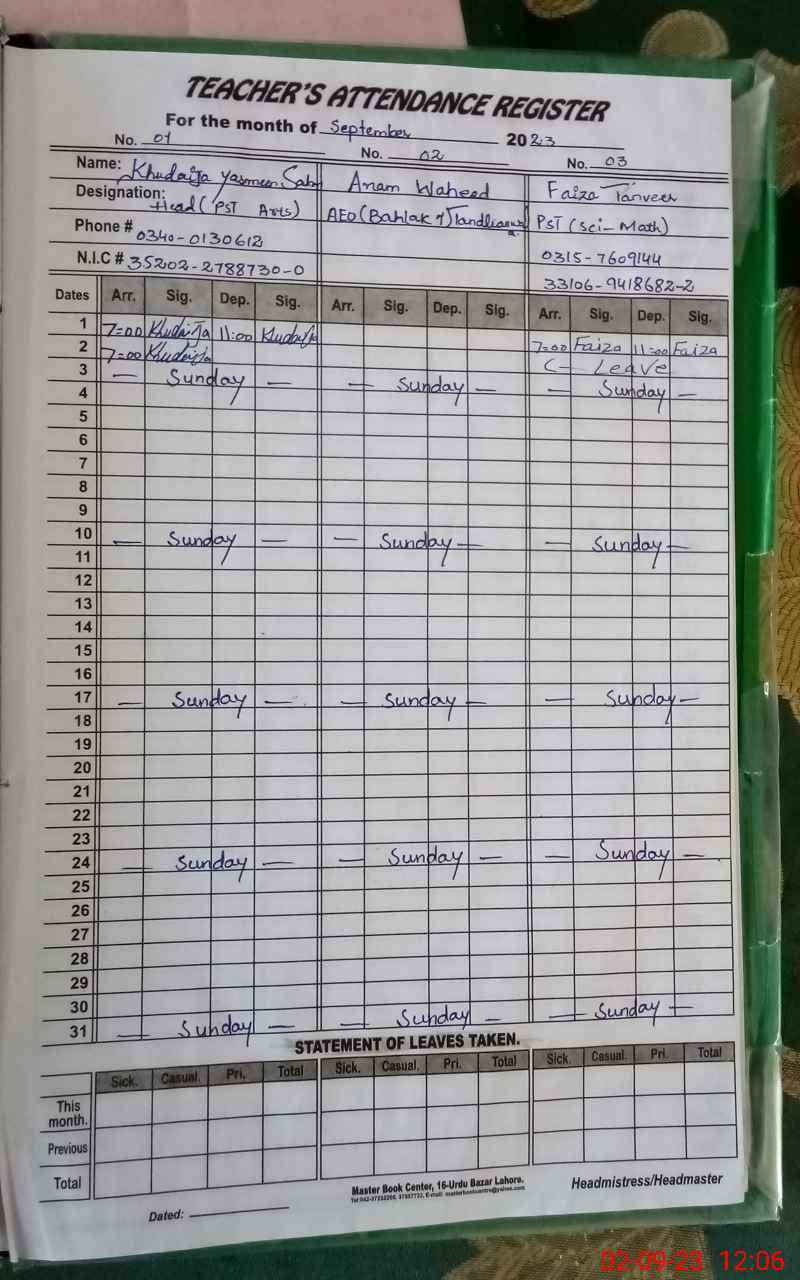 TEACHER'S ATTENDANCE REGISTER
For the month of September 2023
No. 01 No. 02 No. 03
Name: Khudaija Yasmeen Anam Waheed Faiza Tanveer
Designation: Head (PST Arts) AEO (Bahlak PST (Sci-Math)
Phone # 0340-0130612 0315-7609144
N.I.C # 35202-2788730-0 33106-9418682-2
Dates Arr. Sig. Dep. Sig. Arr. Sig. Dep. Sig. Arr. Sig. Dep. Sig.
1 7=00 Khudaija 11:00 Khudaija 7=00 Faiza 11=00 Faiza
2 7=00 Khudaija Leave
3 — Sunday — — Sunday — — Sunday —
4
5
6
7
8
9
10 — Sunday — — Sunday — — Sunday —
11
12
13
14
15
16
17 — Sunday — — Sunday — — Sunday —
18
19
20
21
22
23
24 — Sunday — — Sunday — — Sunday —
25
26
27
28
29
30
31 — Sunday — — Sunday — — Sunday —
STATEMENT OF LEAVES TAKEN.
Sick. Casual. Pri. Total Sick. Casual. Pri. Total Sick. Casual. Pri. Total
This
month.
Previous
Total
Master Book Center, 16-Urdu Bazar Lahore.
Headmistress/Headmaster
Dated:
02-09-23 12:06